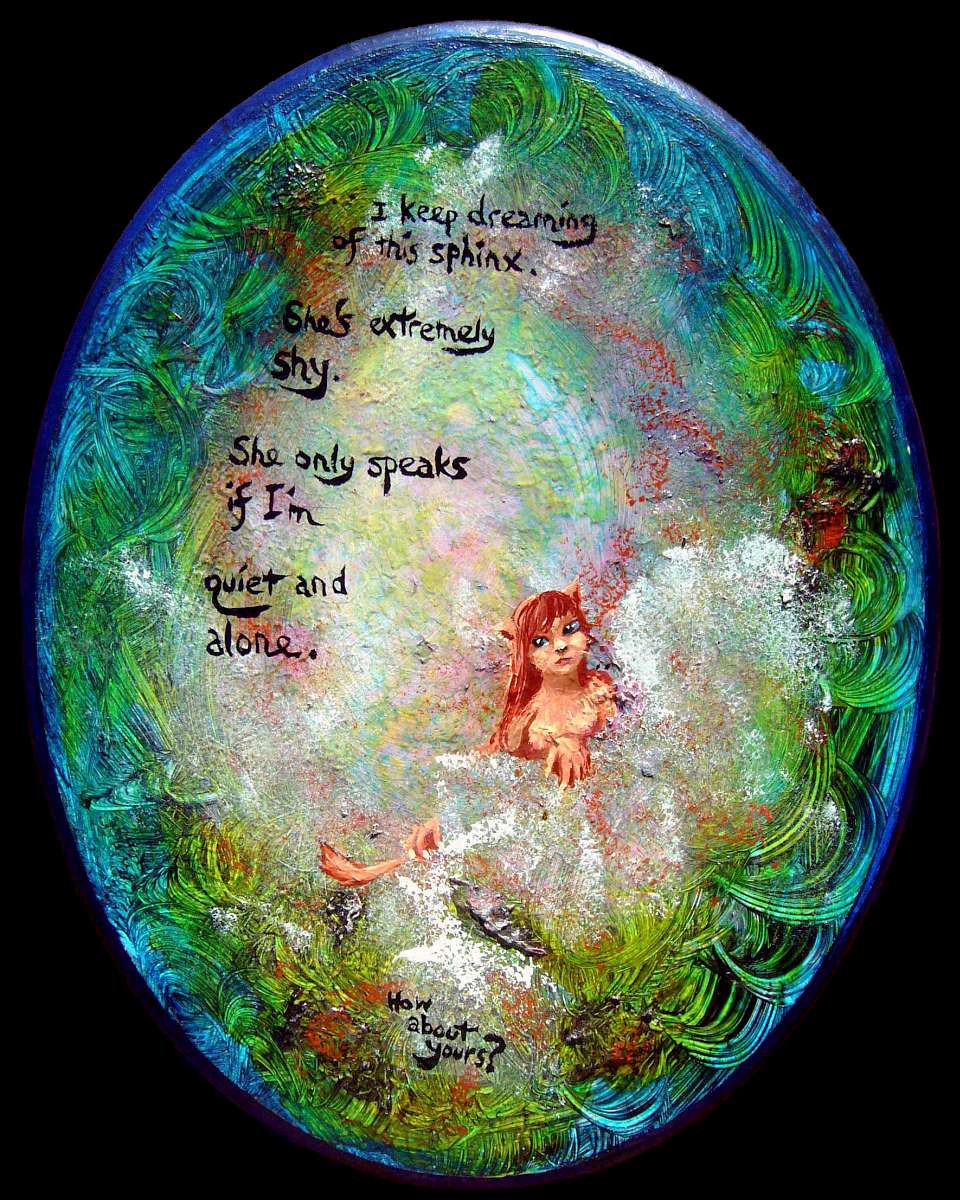 I keep dreaming
of this sphinx.
She's extremely
shy.
She only speaks
if I'm
quiet and
alone.
How
about
yours?